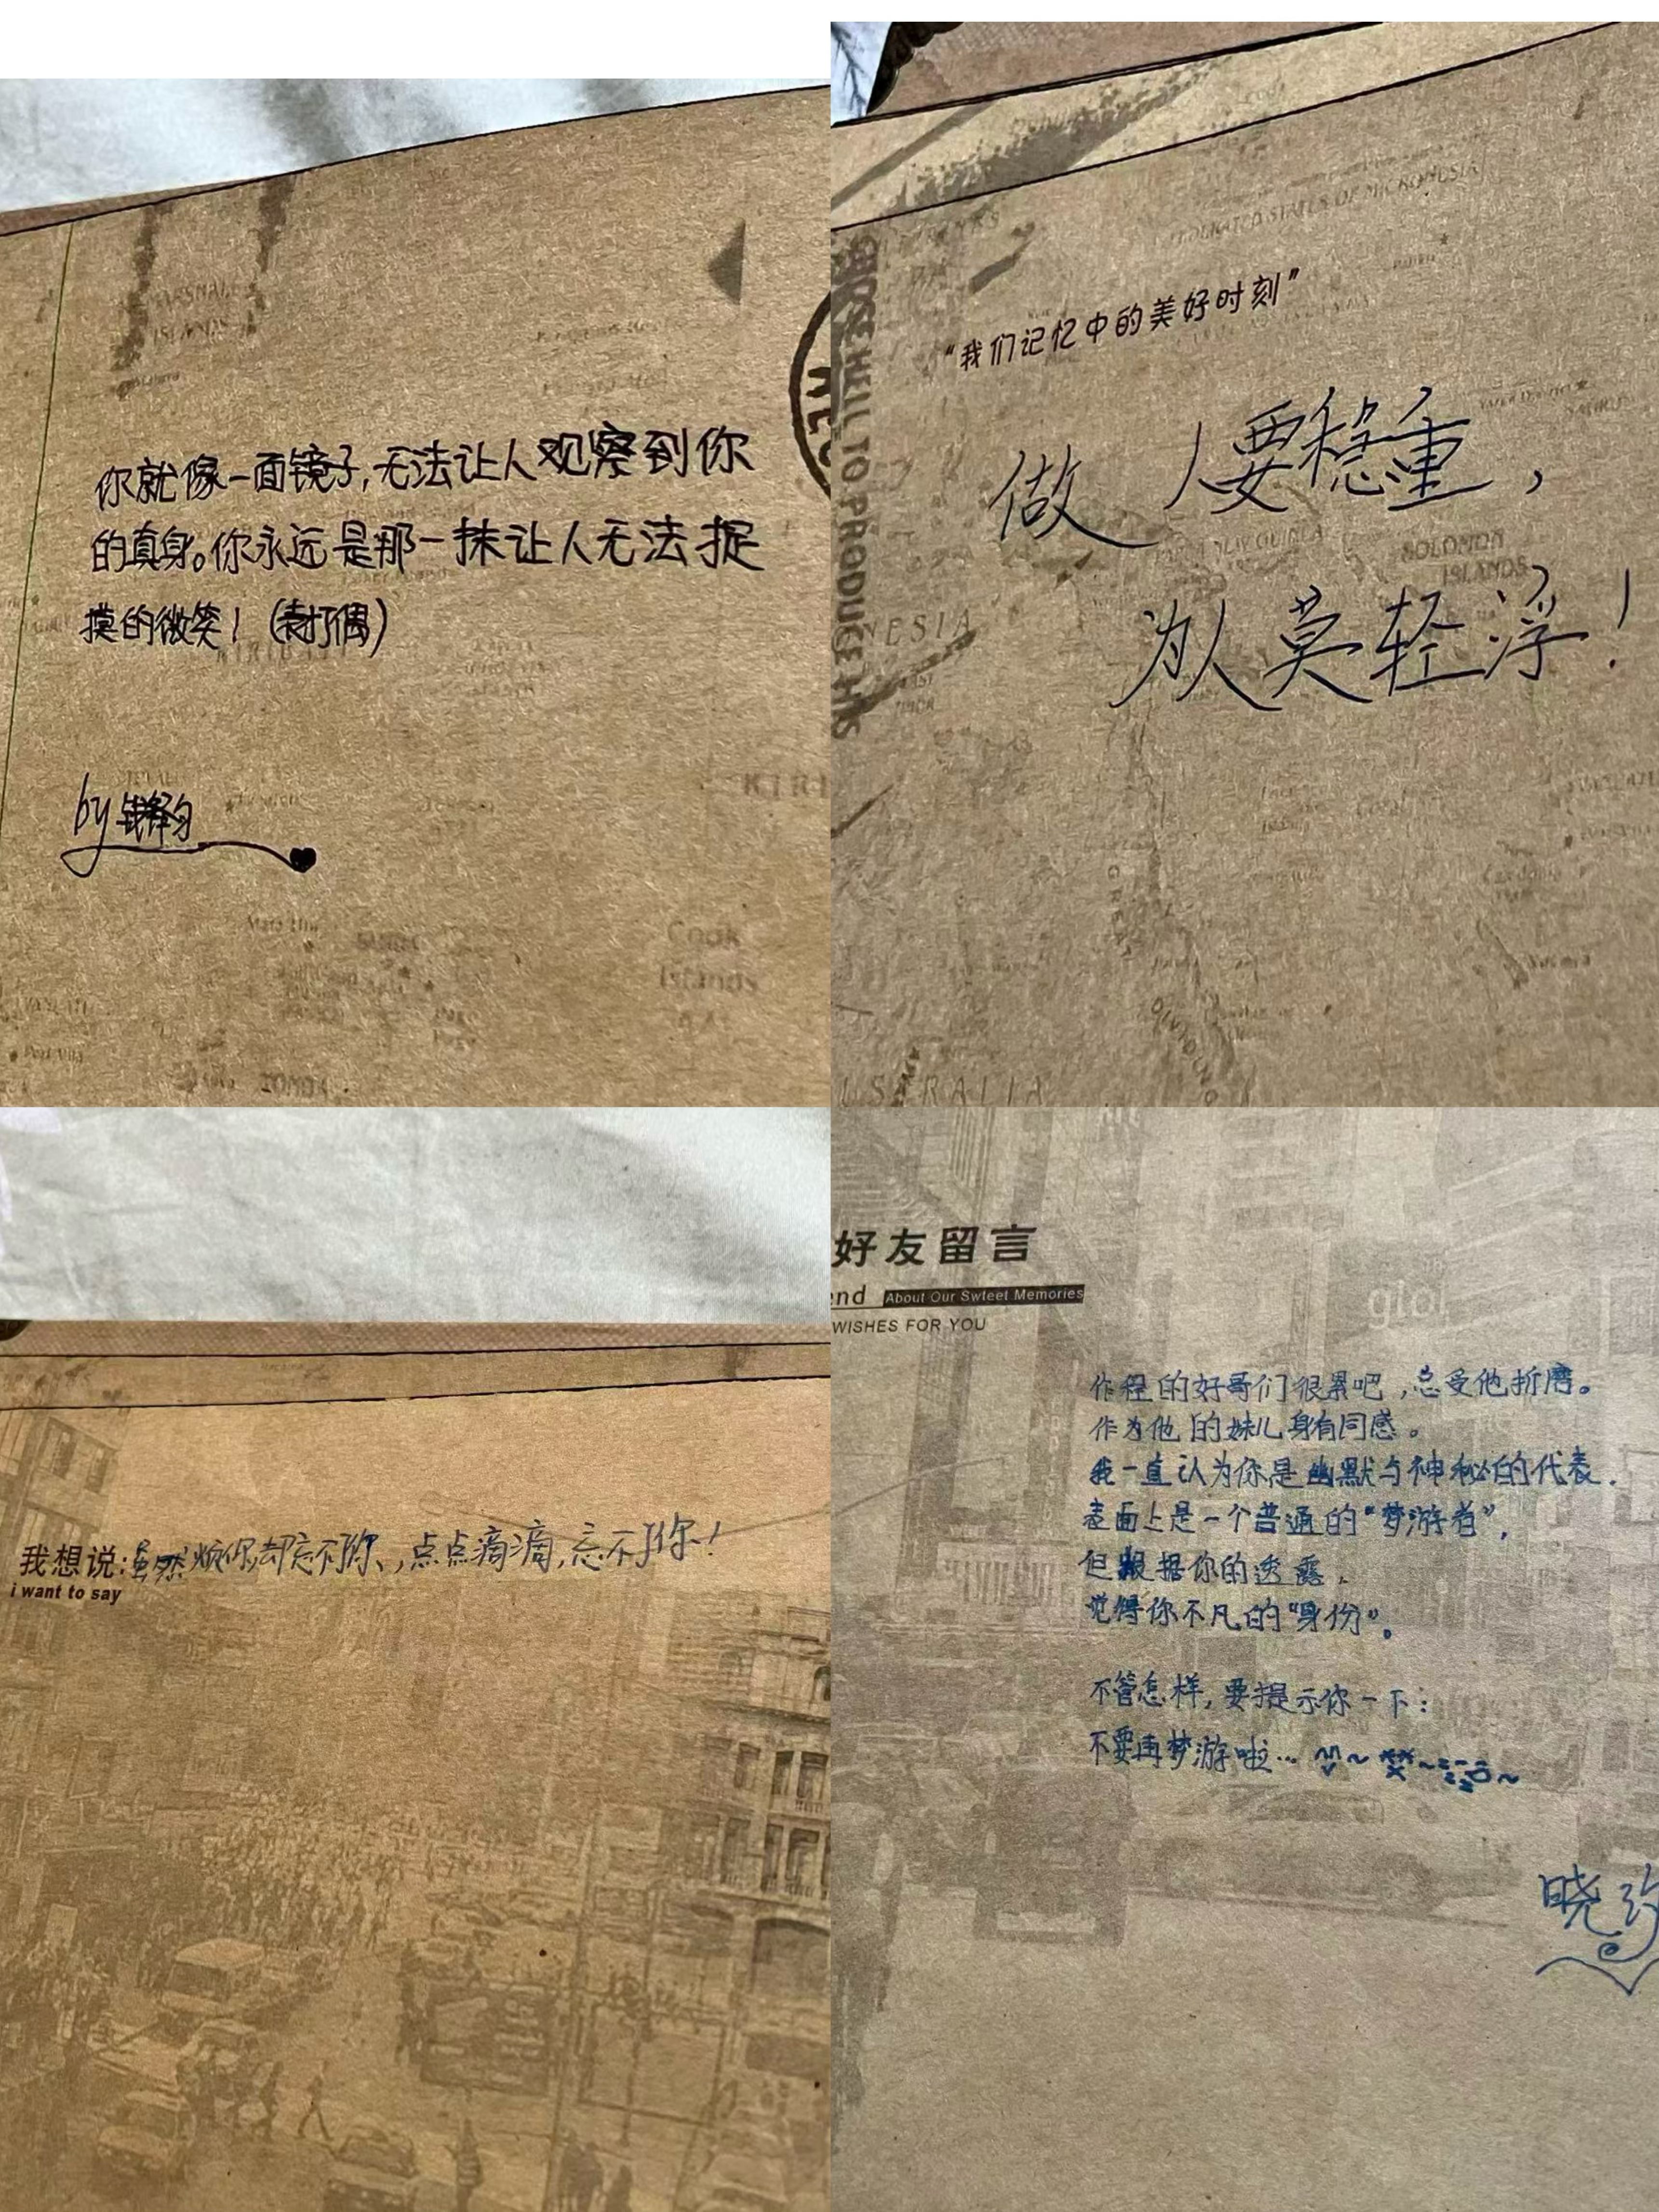 你就像一面镜子,无法让人观察到你
的真身。你永远是那一抹让人无法捉
摸的微笑!
by
MARSHALL
ISLANDS
KIRIBATI
Cook
Islands
Port Vila
TONGA
CHOOSE HELL TO PRODUCE HIS
FEDERATED STATES OF MICRONESIA
“我们记忆中的美好时刻”
做人要稳重,
为人莫轻浮!
SOLOMON
ISLANDS
NESIA
USTRALIA
我想说:虽然烦你,却忘不了你、,点点滴滴,忘不了你!
i want to say
好友留言
end About Our Swteet Memories
WISHES FOR YOU
作程的好哥们很累吧,总受他折磨。
作为他的妹儿身有同感。
我一直认为你是幽默与神秘的代表.
表面上是一个普通的“梦游者”,
但根据你的透露、
觉得你不凡的“身份”。
不管怎样,要提示你一下:
不要再梦游啦...
晓